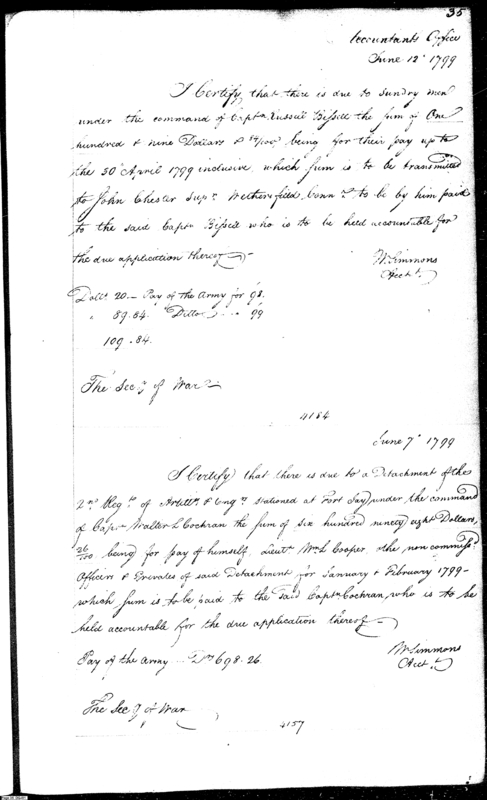 35
Accountants Office
June 12th 1799
I Certify, that there is due to sundry men
under the command of Capt. Russell Bissell the sum of One
hundred & nine Dollars & 84/100, being for their pay up to
the 30th April 1799 inclusive which sum is to be transmitted
to John Chester Supr. Wethersfield, Connt. to be by him paid
to the said Captn Bissell who is to be held accountable for
the due application thereof
W. Simmons
Acctt.
Dolls. 20.— Pay of the Army for 98.
" 89.84. " Ditto .. .. 99
109.84.
The Secy of War
4184
June 7th 1799
I Certify that there is due to a Detachment of the
2nd Regt. of Artilly. & Engrs. stationed at Fort Jay, under the command
of Captn Walter L Cochran the sum of six hundred ninety eight Dollars,
26/100 being for pay of himself, Lieutt. Wm. L Cooper & the non commissd.
Officers & Privates of said Detachment for January & February 1799—
which sum is to be paid to the said Captn Cochran, who is to be
held accountable for the due application thereof
W Simmons
Acctt.
Pay of the Army ... Drs 698.26.
The Secy of War
4157